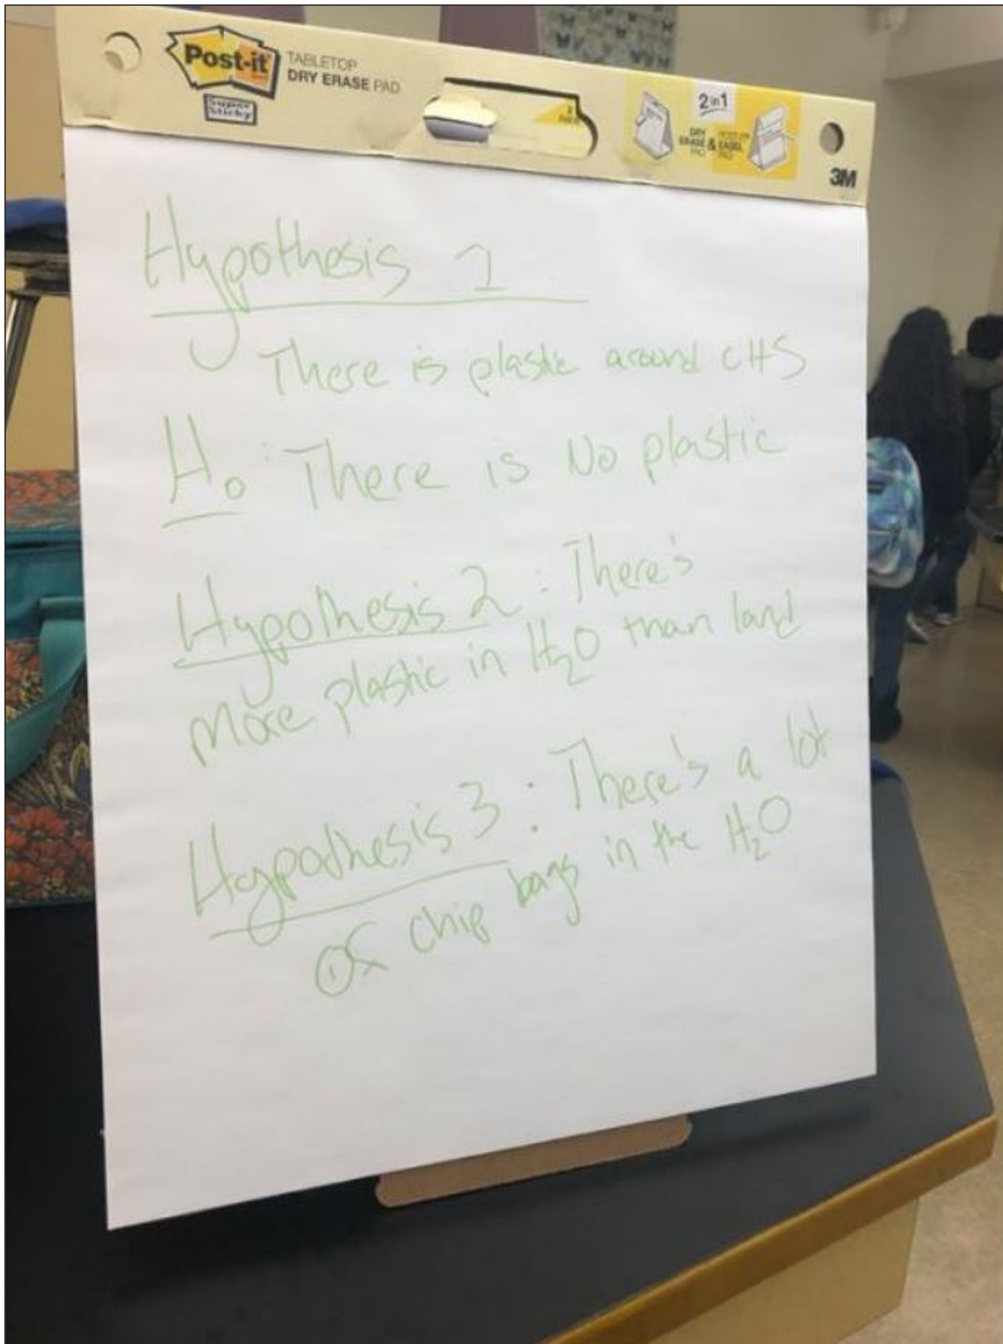 Post-it
TABLETOP
DRY ERASE PAD
Super
Sticky
2 in 1
DRY
ERASE
PAD
&
EASEL
PAD
3M
Hypothesis 1
There is plastic around CHS
H₀: There is No plastic
Hypothesis 2: There's
more plastic in H₂O than land
Hypothesis 3: There's a lot
of chip bags in the H₂O